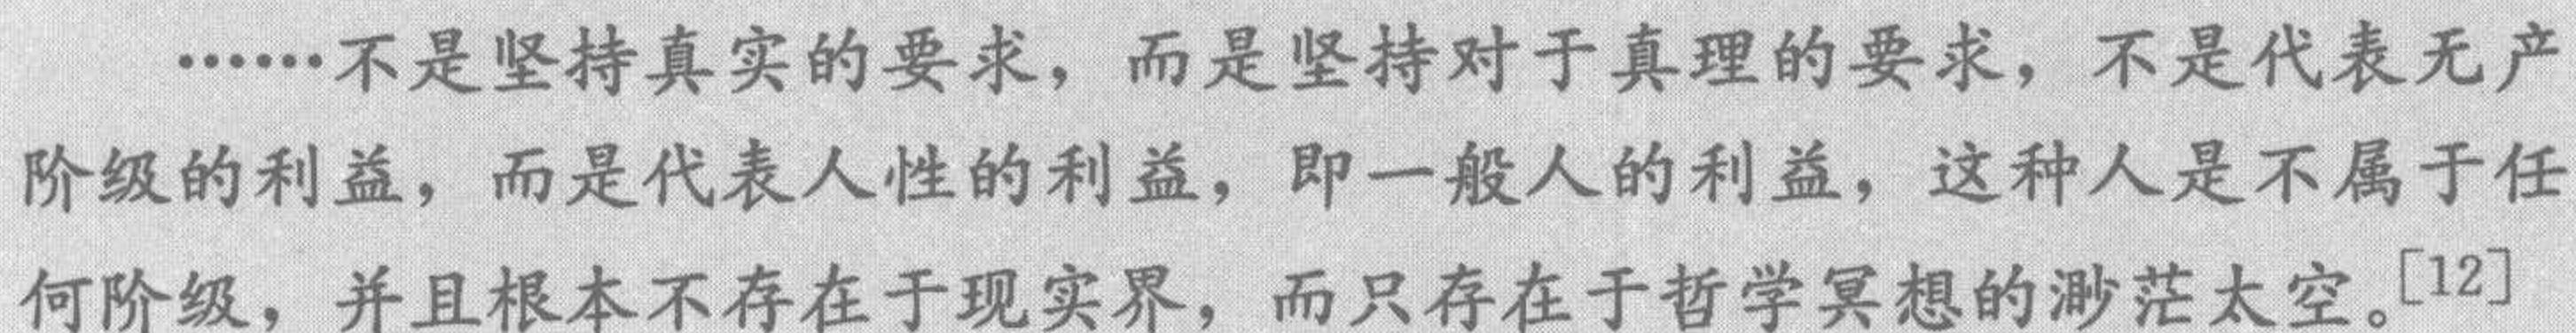 ……不是坚持真实的要求，而是坚持对于真理的要求，不是代表无产
阶级的利益，而是代表人性的利益，即一般人的利益，这种人是不属于任
何阶级，并且根本不存在于现实界，而只存在于哲学冥想的渺茫太空。[12]